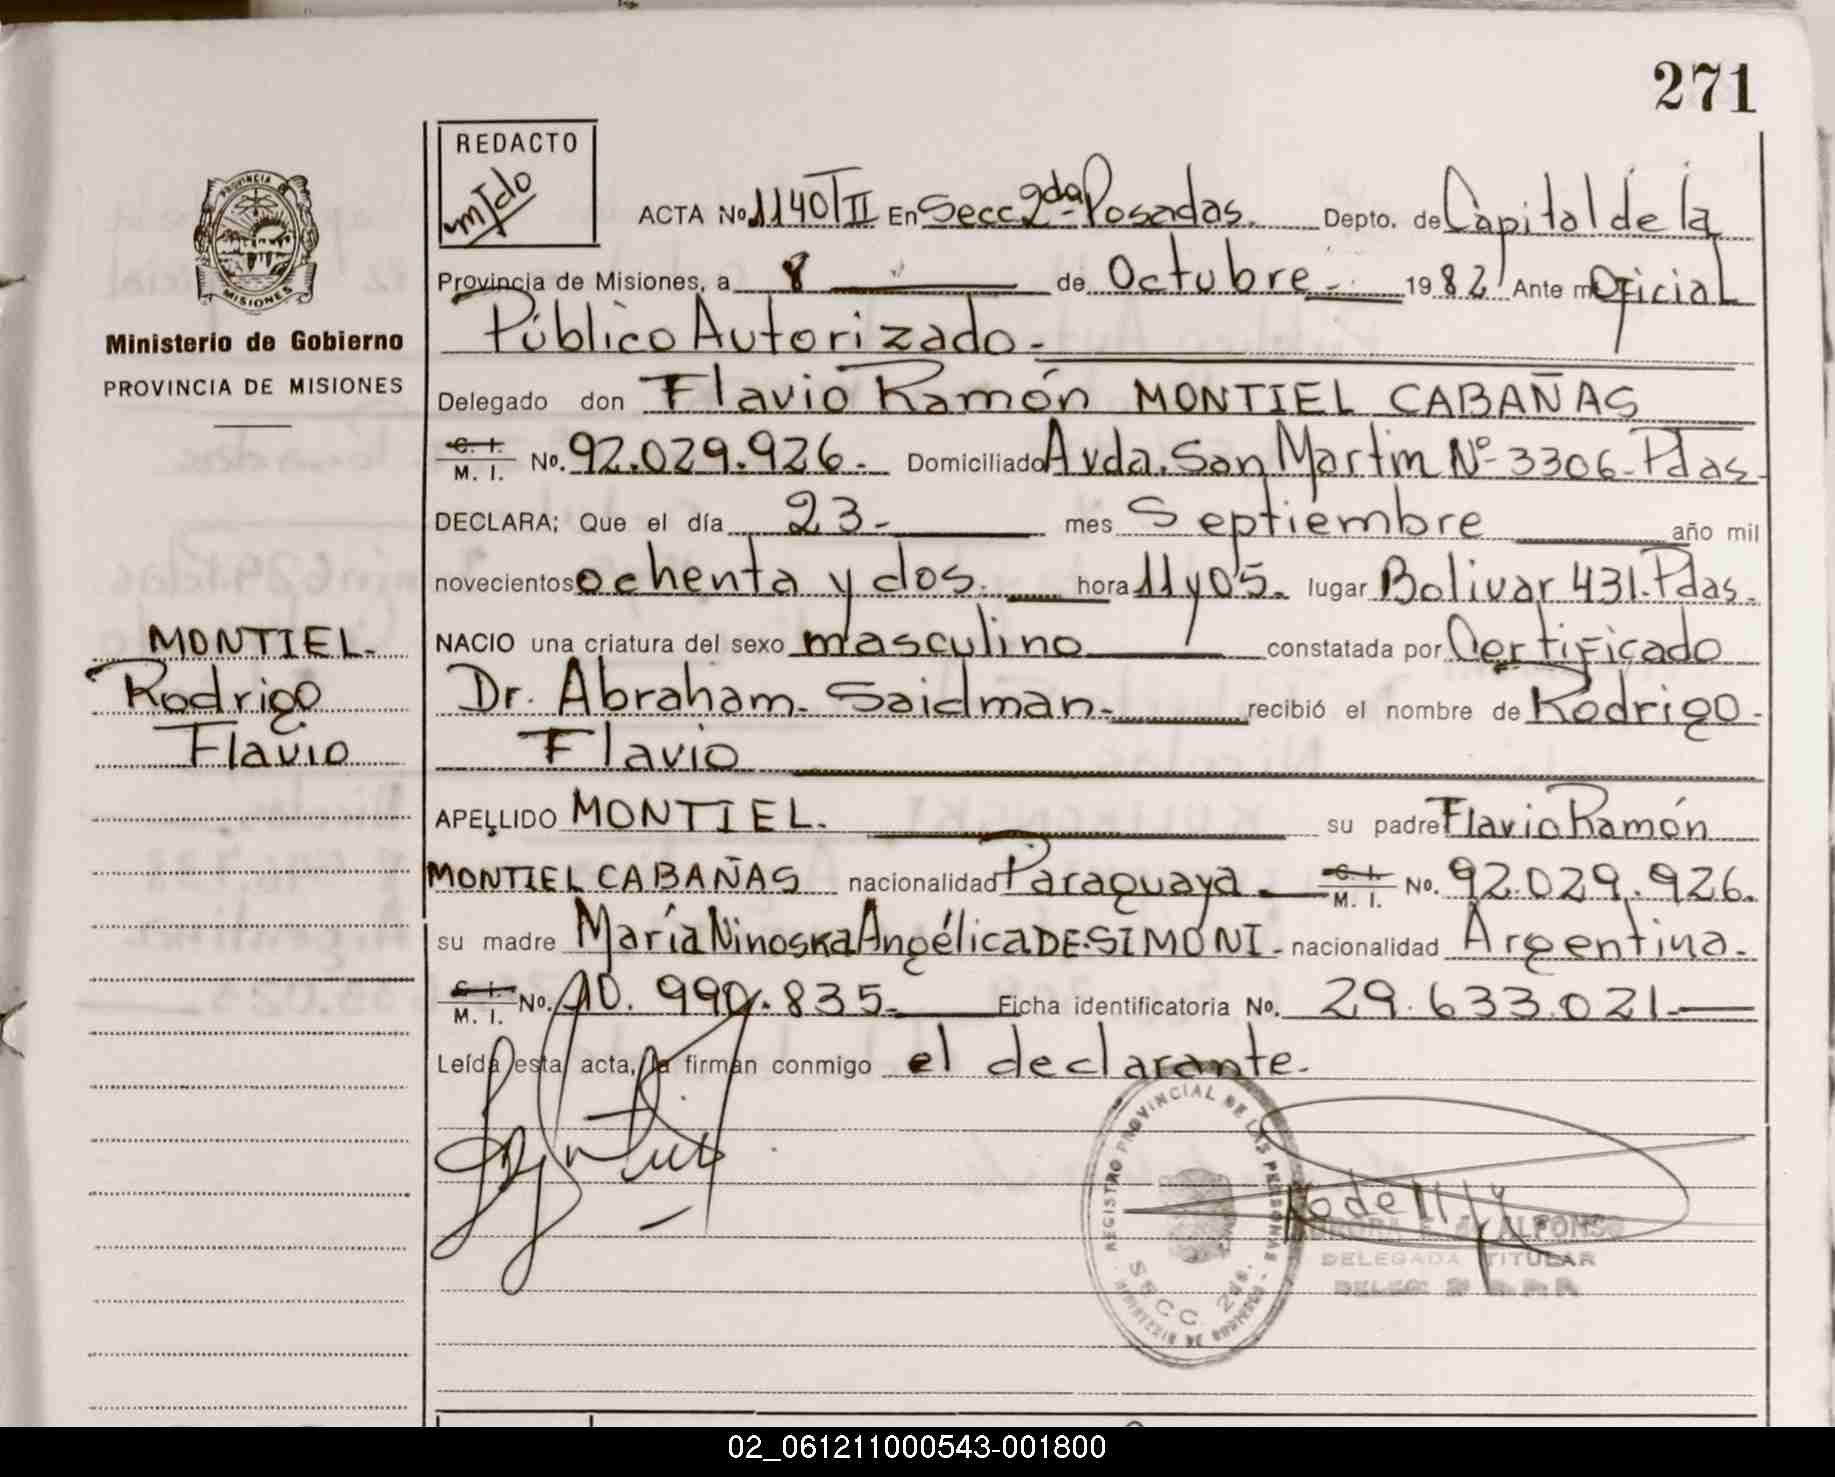 271
REDACTO
PROVINCIA
MISIONES
Ministerio de Gobierno
PROVINCIA DE MISIONES
MONTIEL.
Rodrigo
Flavio
ACTA No 1140 TII En Secc 2da Posadas. Depto. de Capital de la
Provincia de Misiones, a 8 de Octubre 1982 Ante mi Oficial
Público Autorizado-
Delegado don Flavio Ramón MONTIEL CABAÑAS
C. I. M. I. No. 92.029.926.- Domiciliado Avda. San Martin Nº 3306- Pdas-
DECLARA; Que el día 23- mes Septiembre año mil
novecientos ochenta y dos. hora 11 y 05. lugar Bolivar 431. Pdas.
NACIO una criatura del sexo masculino constatada por Certificado
Dr. Abraham Saidman- recibió el nombre de Rodrigo-
Flavio
APELLIDO MONTIEL. su padre Flavio Ramón
MONTIEL CABAÑAS nacionalidad Paraguaya C. I. M. I. No. 92.029.926.
su madre María Ninoska Angélica DE SIMONI- nacionalidad Argentina.
C. I. M. I. No. 10.990.835- Ficha identificatoria No. 29.633.021-
Leída esta acta, la firman conmigo el declarante.
REGISTRO PROVINCIAL DE LAS PERSONAS
SECC 2da.
ALFONSO
DELEGADA TITULAR
02_061211000543-001800